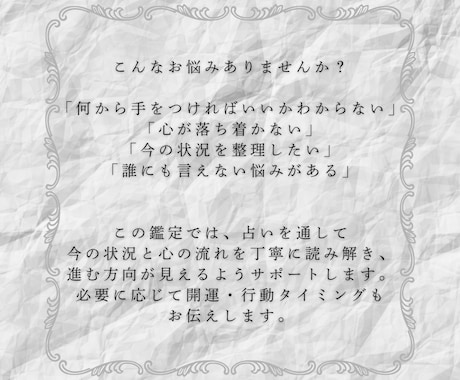 こんなお悩みありませんか？
「何から手をつければいいかわからない」
「心が落ち着かない」
「今の状況を整理したい」
「誰にも言えない悩みがある」
この鑑定では、占いを通して
今の状況と心の流れを丁寧に読み解き、
進む方向が見えるようサポートします。
必要に応じて開運・行動タイミングも
お伝えします。